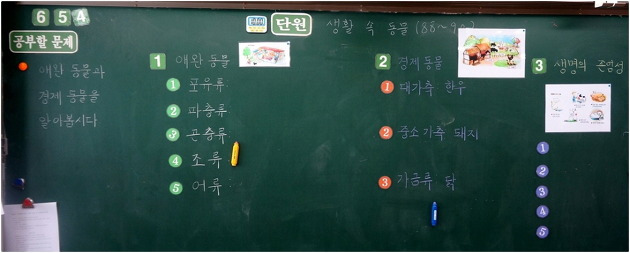 6 5 4
단원 생활 속 동물 (88~90)
공부할 문제
애완 동물과
경제 동물을
알아봅시다
1 애완 동물
1 포유류
2 파충류
3 곤충류
4 조류
5 어류
2 경제 동물
1 대가축 한우
2 중소가축 돼지
3 가금류 닭
3 생명의 존엄성
1
2
3
4
5